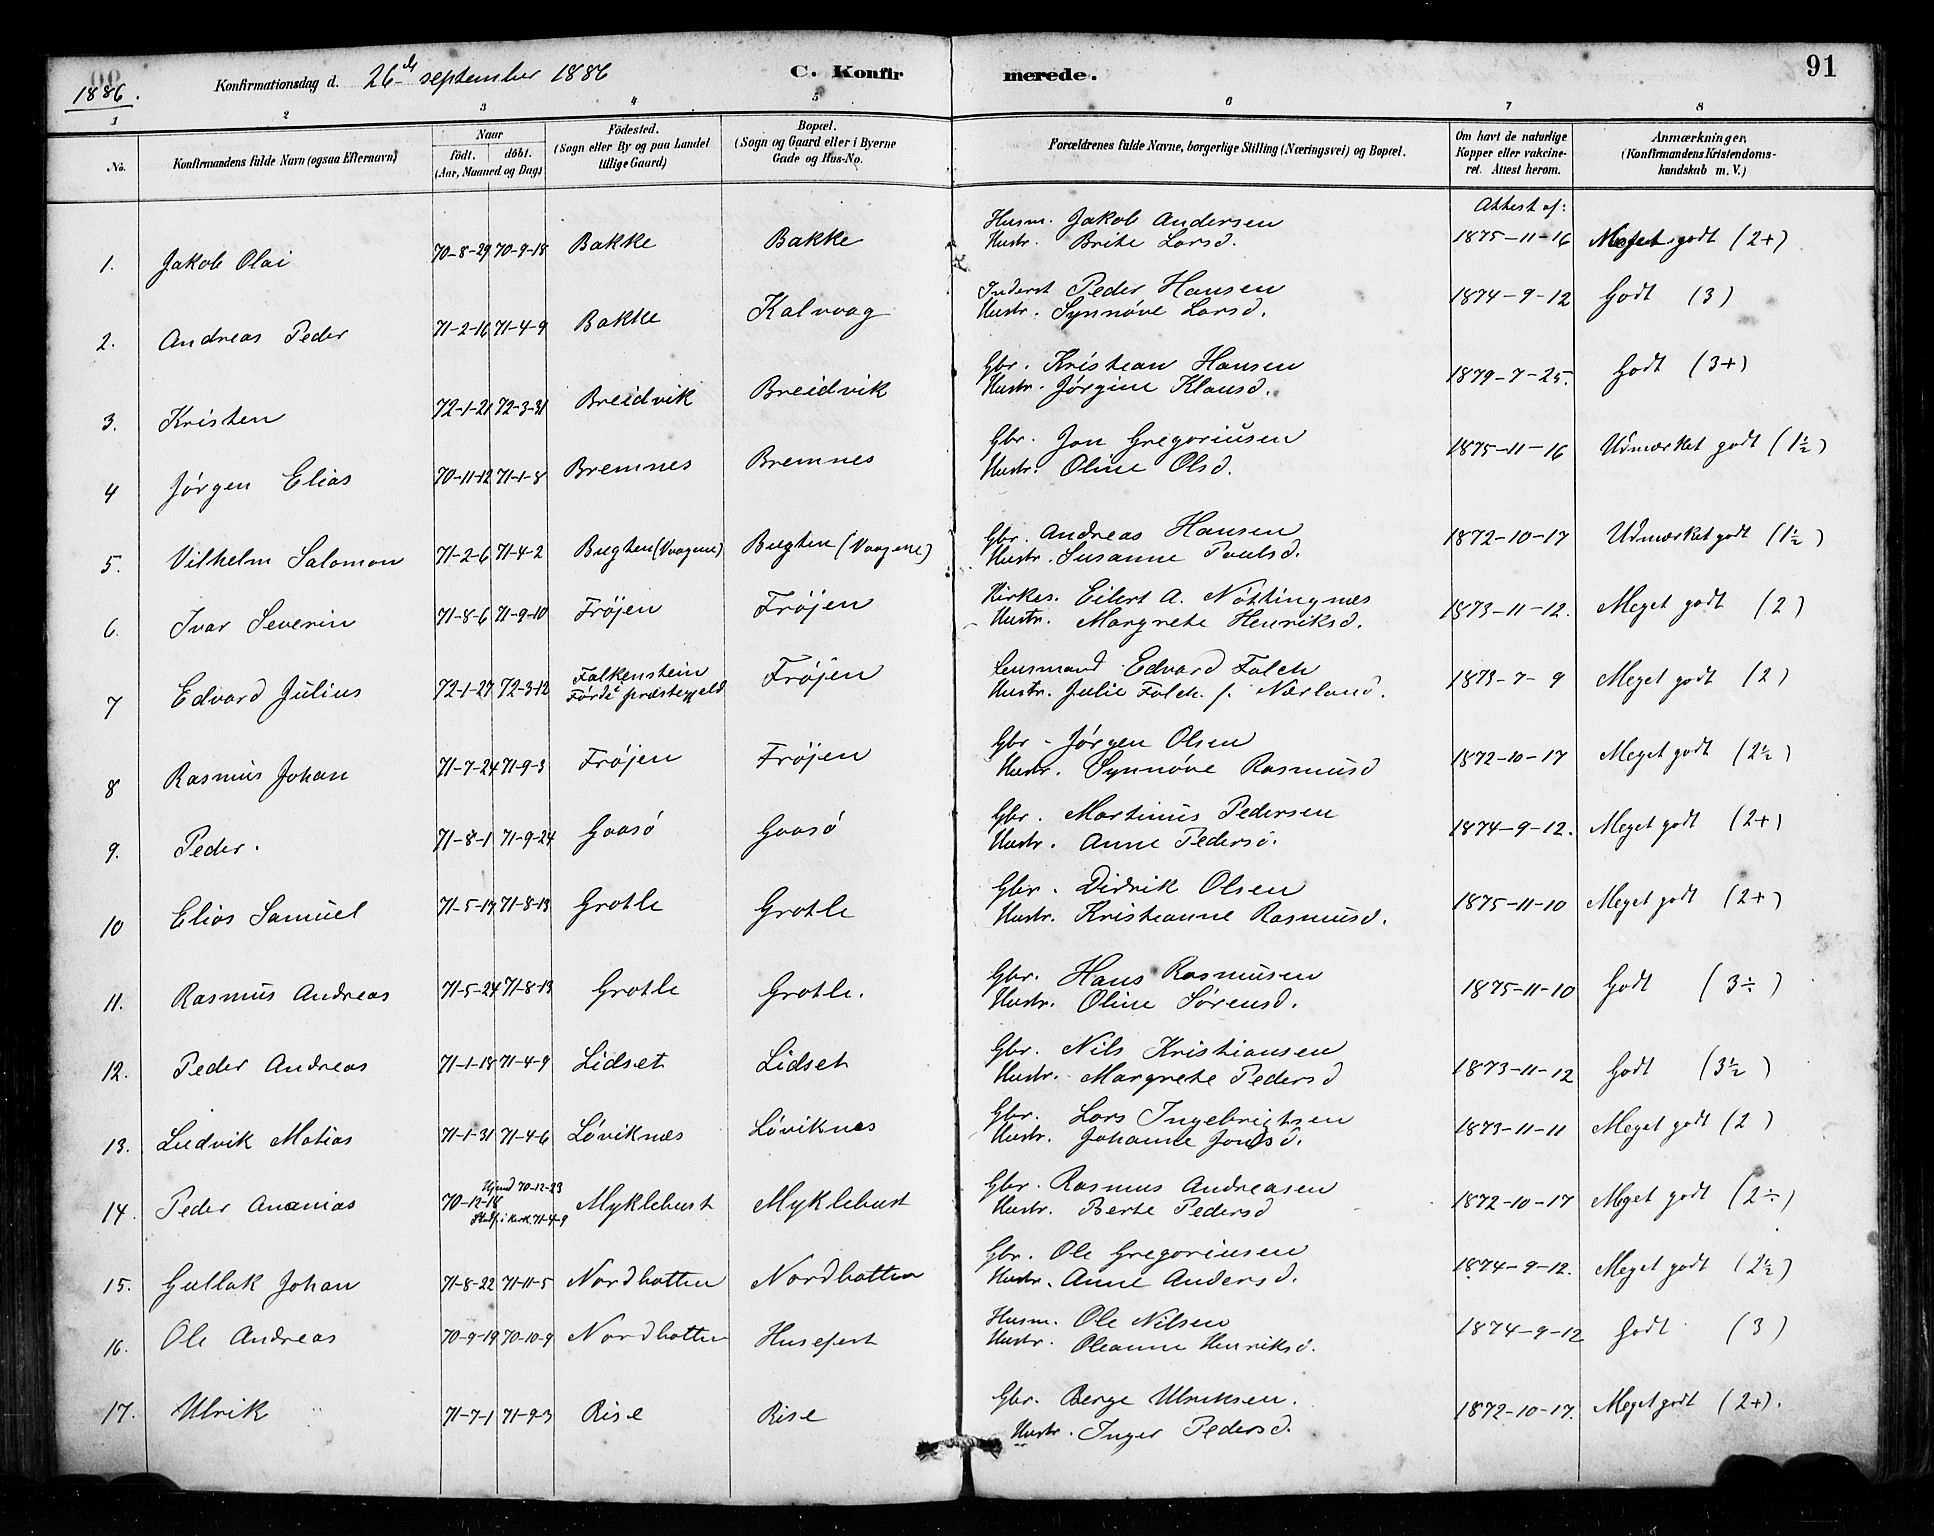 1886.
Konfirmationsdag d. 26de september 1886
C. Konfirmerede.
91
1 2 3 4 5 6 7 8
No. Konfirmandens fulde Navn (ogsaa Efternavn) Naar født. døbt. (Aar, Maaned og Dag) Fødested. (Sogn eller By og paa Landet tillige Gaard) Bopæl. (Sogn og Gaard eller i Byerne Gade og Hus-No. Forældrenes fulde Navne, borgerlige Stilling (Næringsvei) og Bopæl. Om havt de naturlige Kopper eller vakcineret. Attest herom. Anmærkninger, (Konfirmandens Kristendomskundskab m. V.)
Attest af:
1. Jakob Olai 70-8-29 70-9-18 Bakke Bakke Husm. Jakob Andersen 1875-11-16 Meget godt (2+)
Hustr. Brite Larsd.
2. Andreas Peder 71-2-16 71-4-9 Bakke Kalvaag Inderst Peder Hansen 1874-9-12 Godt (3)
Hustr. Synnøve Larsd.
3. Kristen 72-1-21 72-3-31 Breidvik Breidvik Gbr. Kristean Hansen 1879-7-25. Godt (3+)
Hustr. Jørgine Klausd.
4 Jørgen Elias 70-11-12 71-1-8 Bremnes Bremnes Gbr. Jon Gregoriusen 1875-11-16 Udmærket godt (1½)
Hustr. Oline Olsd.
5. Vilhelm Salomon 71-2-6 71-4-2 Bugten (Vaagene) Bugten (Vaagene) Gbr. Andreas Hansen 1872-10-17 Udmærket godt (1½)
Hustr. Susanne Paulsd.
6. Ivar Severin 71-8-6 71-9-10 Frøjen Frøjen Kirkes. Eilert A. Nøttingnæs 1873-11-12. Meget godt (2)
Hustr. Margrete Henriksd.
7 Edvard Julius 72-1-27 72-3-12 Falkenstein Førde præstegjeld Frøjen Lensmand Edvard Falch 1873-7-9 Meget godt (2)
Hustr. Julie Falch f. Nærland.
8 Rasmus Johan 71-7-24 71-9-3 Frøjen Frøjen Gbr - Jørgen Olsen 1872-10-17 Meget godt (2½)
Hustr. Synnøve Rasmusd
9. Peder. 71-8-1 71-9-24 Gaasø Gaasø Gbr. Martinus Pedersen 1874-9-12. Meget godt (2+)
Hustr. Anne Pedersd.
10 Elias Samuel 71-5-17 71-8-13 Grotle Grotle Gbr. Didrik Olsen 1875-11-10 Meget godt (2+)
Hustr. Kristeanne Rasmusd.
11. Rasmus Andreas 71-5-24 71-8-13 Grotle Grotle. Gbr. Hans Rasmusen 1875-11-10 Godt (3÷)
Hustr. Oline Sørensd.
12. Peder Andreas 71-1-18 71-4-9 Lidset Lidset Gbr. Nils Kristiansen 1873-11-12 Godt (3½)
Hustr. Margrete Pedersd
13. Ludvik Matias 71-1-31 71-4-6 Løviknæs Løviknæs Gbr. Lars Ingebrigtsen 1873-11-11 Meget godt (2)
Hustr. Johanne Jonsd.
14. Peder Ananias 70-12-18 Hjemd 70-12-23 Stadf. i Kirk. 71-4-9 Myklebust Myklebust Gbr. Rasmus Andreasen 1872-10-17 Meget godt (2÷)
Hustr. Berte Pedersd
15. Gullak Johan 71-8-22 71-11-5 Nordbotten Nordbotten Gbr. Ole Gregoriusen 1874-9-12. Meget godt (2½)
Hustr. Anne Andersd.
16. Ole Andreas 70-9-19 70-10-9 Nordbotten Husefest Husm. Ole Nilsen 1874-9-12 Godt (3)
Hustr. Oleanne Henriksd.
17. Ulrik 71-7-1 71-9-3 Rise Rise Gbr. Berge Ulriksen. 1872-10-17. Meget godt (2+).
Hustr. Inger Pedersd.